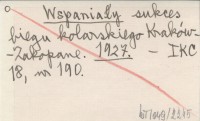 Wspaniały sukces
biegu kolarskiego Kraków-
-Zakopane. 1927. — IKC
18, nr 190.